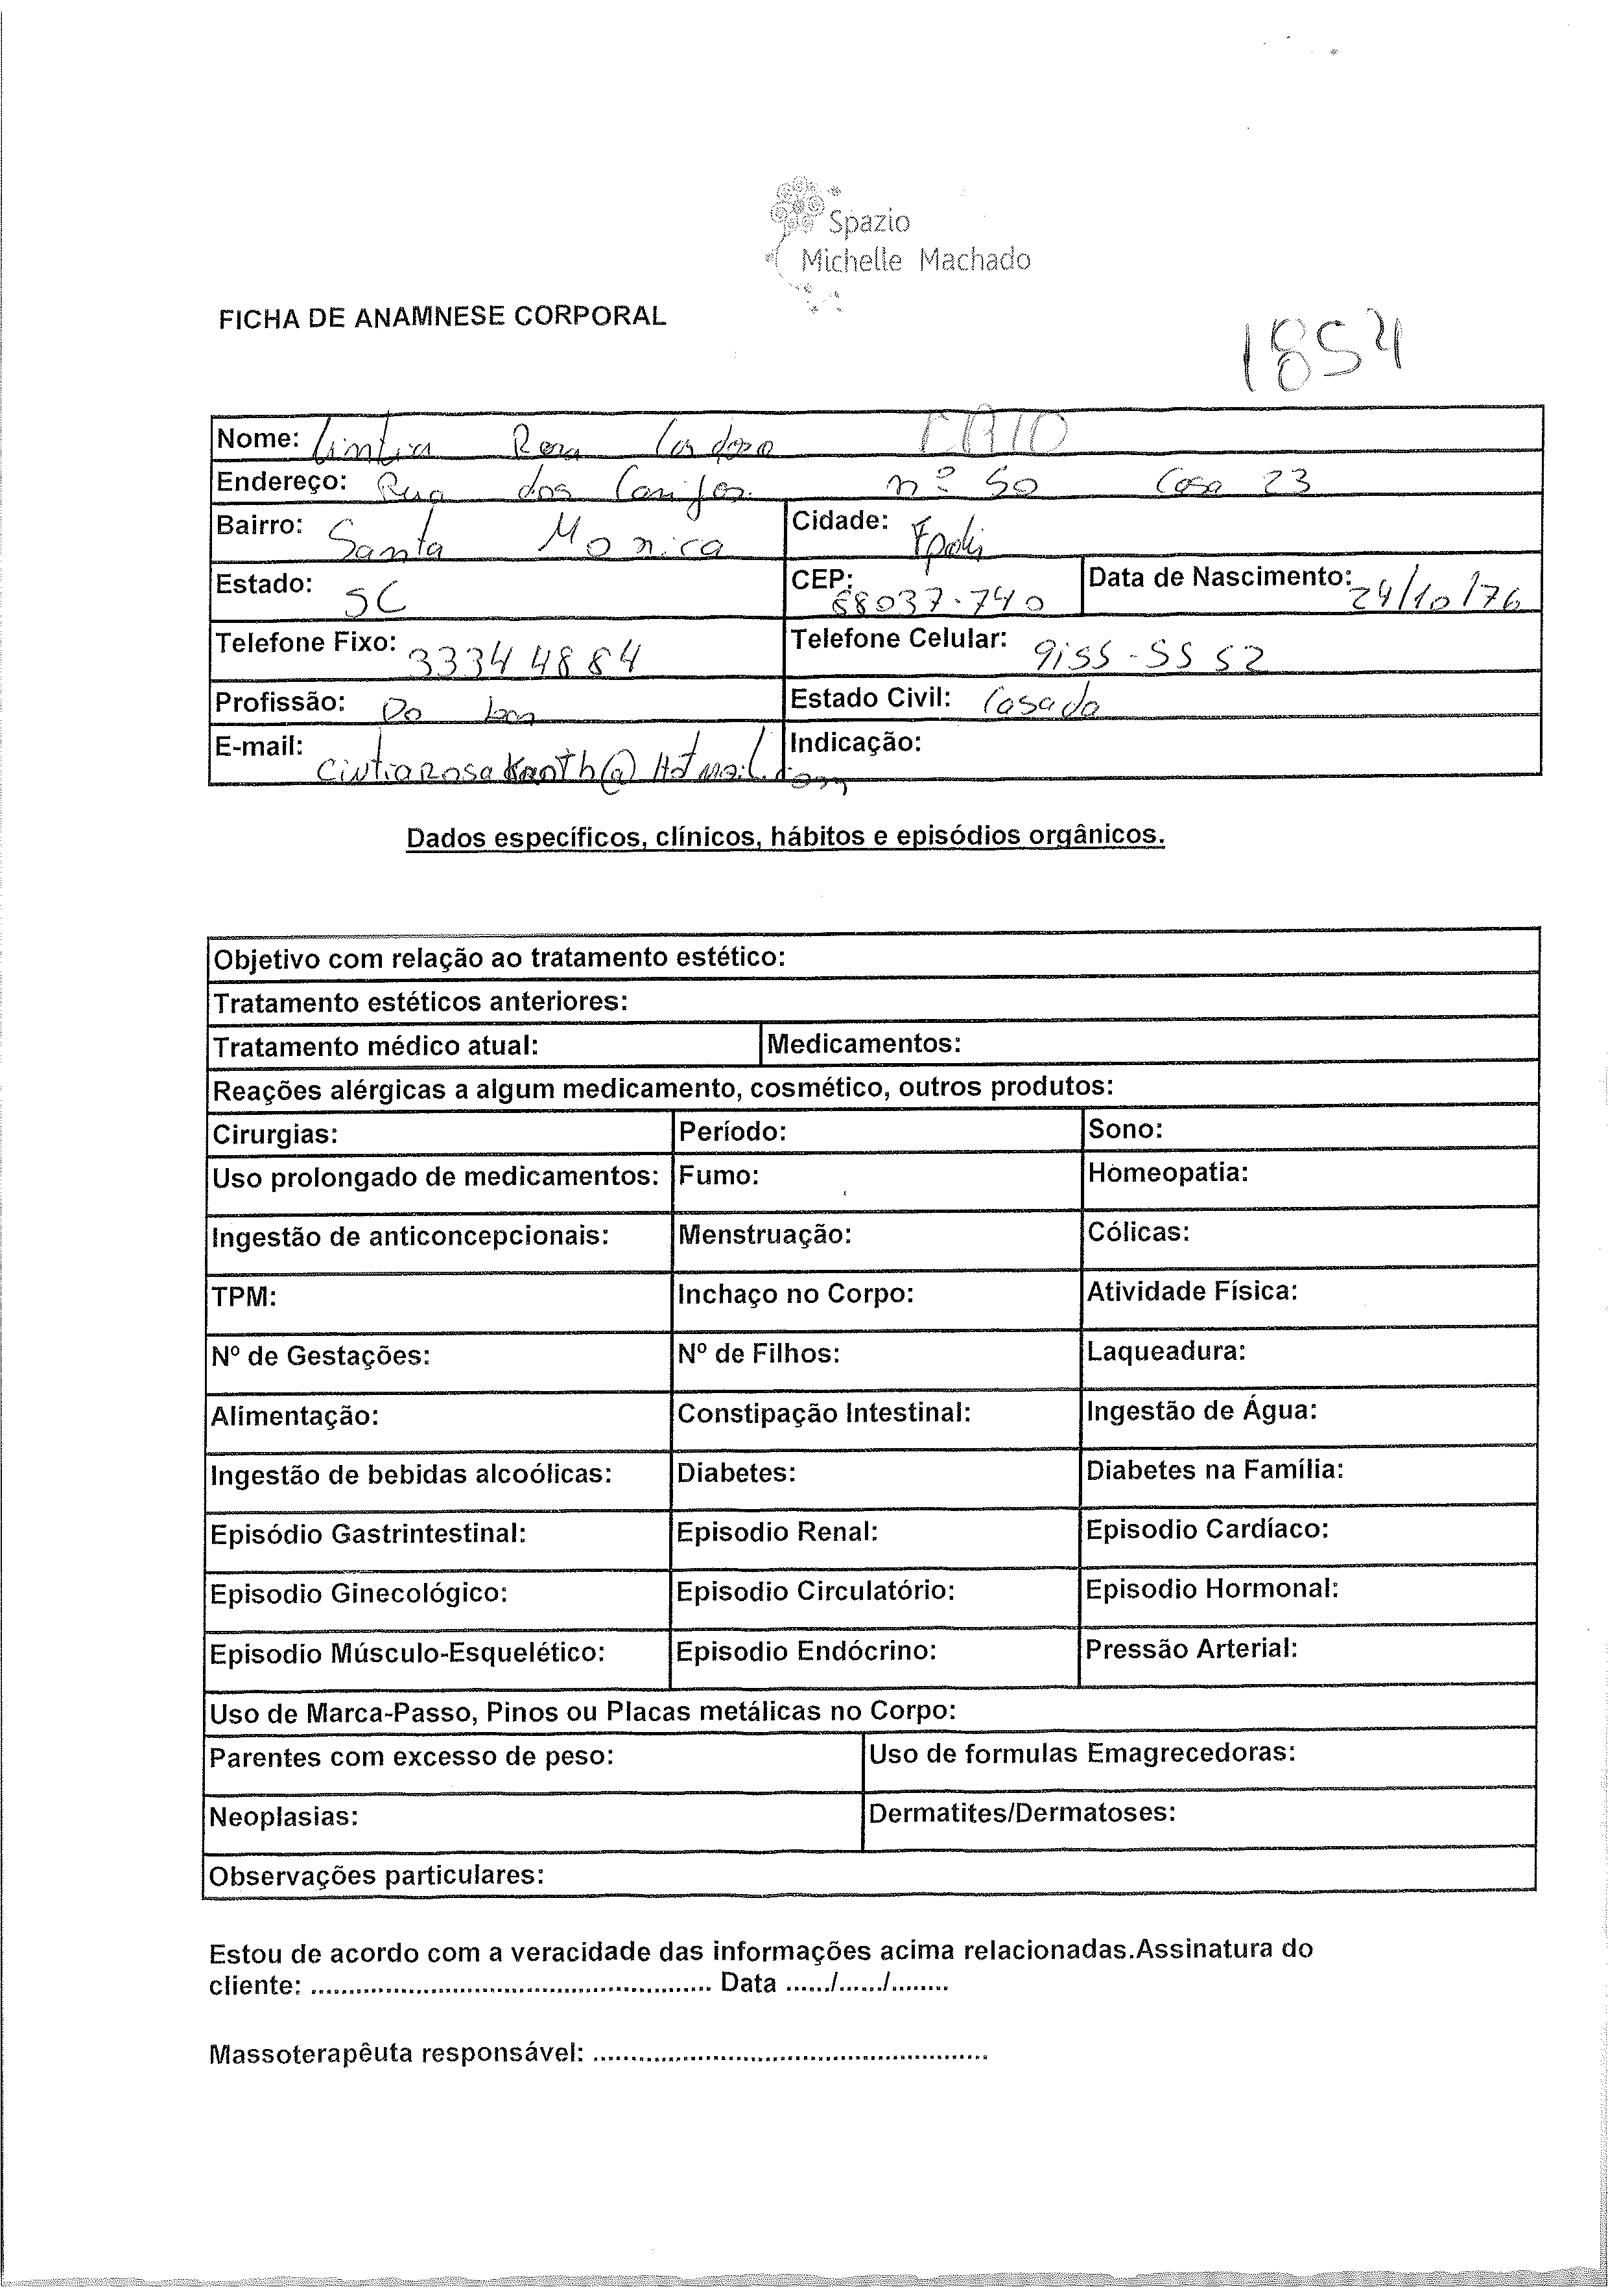 Spazio
Michelle Machado
FICHA DE ANAMNESE CORPORAL
1854
Nome: Cintia Rosa Cardoso
Endereço: Rua dos nº 50 Casa 23
Bairro: Santa Monica Cidade: Fpolis
Estado: SC CEP: 88037-740 Data de Nascimento: 24/10/76
Telefone Fixo: 33344884 Telefone Celular: 9155-5552
Profissão: Do Lar Estado Civil: Casada
E-mail: Indicação:
Dados específicos, clínicos, hábitos e episódios orgânicos.
Objetivo com relação ao tratamento estético:
Tratamento estéticos anteriores:
Tratamento médico atual: Medicamentos:
Reações alérgicas a algum medicamento, cosmético, outros produtos:
Cirurgias: Período: Sono:
Uso prolongado de medicamentos: Fumo: Homeopatia:
Ingestão de anticoncepcionais: Menstruação: Cólicas:
TPM: Inchaço no Corpo: Atividade Física:
Nº de Gestações: Nº de Filhos: Laqueadura:
Alimentação: Constipação Intestinal: Ingestão de Água:
Ingestão de bebidas alcoólicas: Diabetes: Diabetes na Família:
Episódio Gastrintestinal: Episodio Renal: Episodio Cardíaco:
Episodio Ginecológico: Episodio Circulatório: Episodio Hormonal:
Episodio Músculo-Esquelético: Episodio Endócrino: Pressão Arterial:
Uso de Marca-Passo, Pinos ou Placas metálicas no Corpo:
Parentes com excesso de peso: Uso de formulas Emagrecedoras:
Neoplasias: Dermatites/Dermatoses:
Observações particulares:
Estou de acordo com a veracidade das informações acima relacionadas.Assinatura do
cliente: .................................................... Data ....../....../........
Massoterapêuta responsável: ....................................................